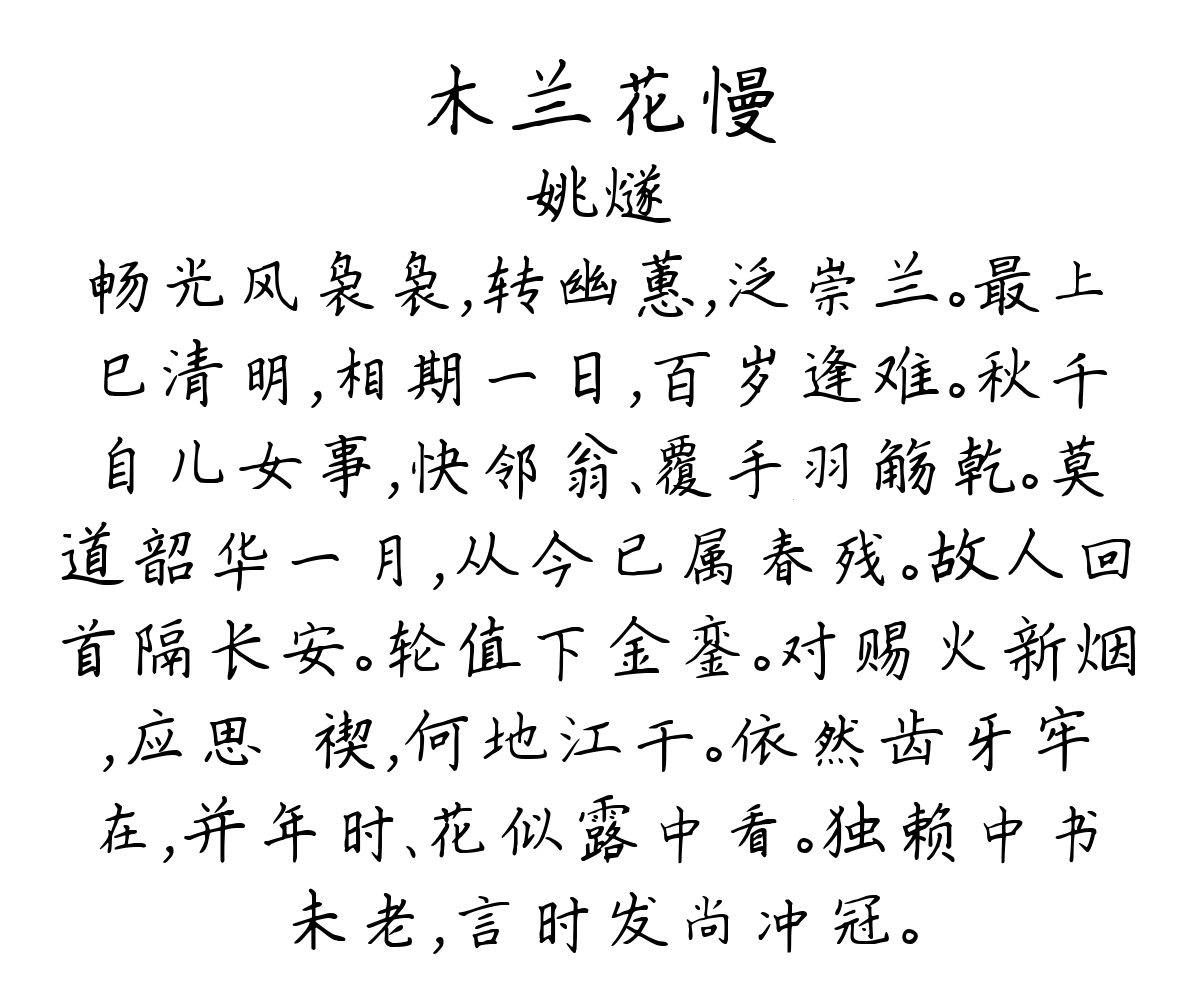 木兰花慢
姚燧
畅光风袅袅,转幽蕙,泛崇兰。最上
巳清明,相期一日,百岁逢难。秋千
自儿女事,快邻翁、覆手羽觞乾。莫
道韶华一月,从今已属春残。故人回
首隔长安。轮值下金銮。对赐火新烟
,应思 禊,何地江干。依然齿牙牢
在,并年时、花似露中看。独赖中书
未老,言时发尚冲冠。